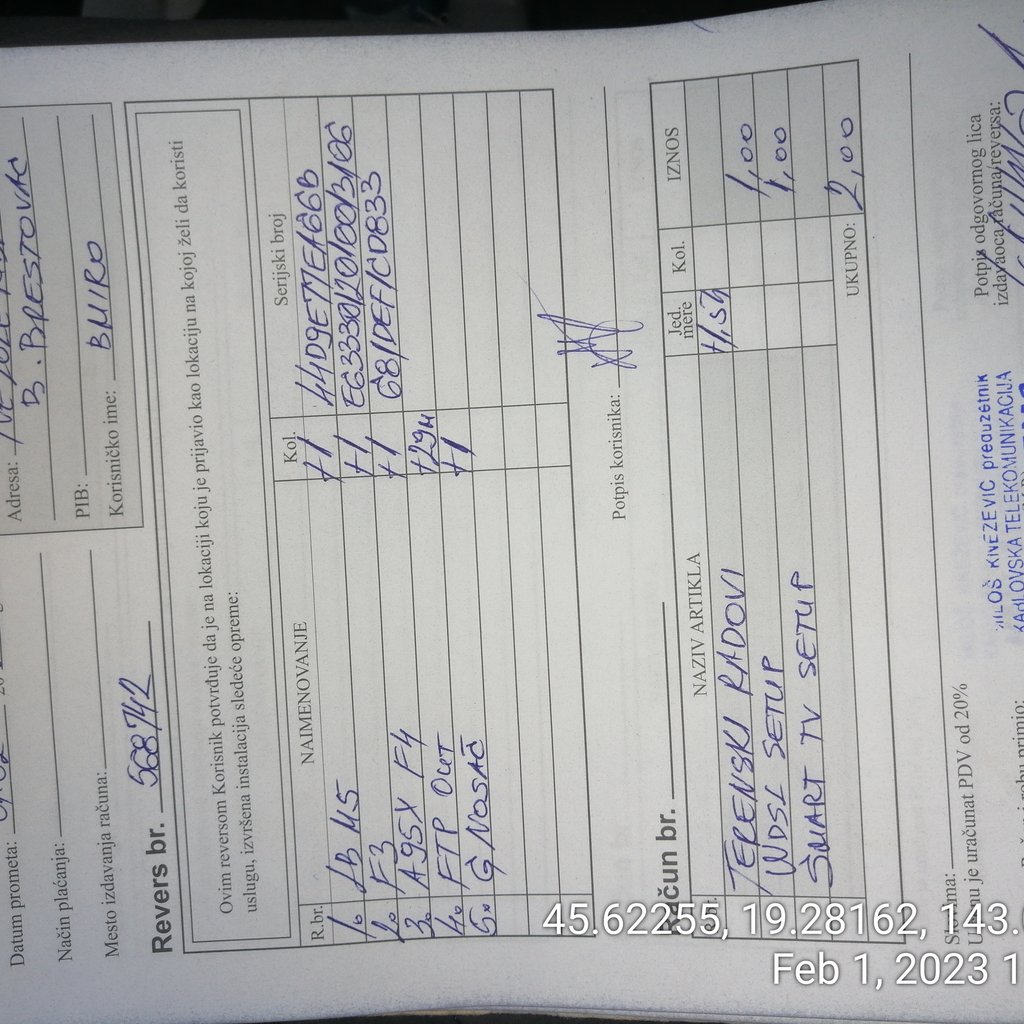 Datum prometa:
Adresa:
B. BRESTOVAC
Način plaćanja:
PIB:
Mesto izdavanja računa:
Korisničko ime: BMIRO
Revers br. 568742
Ovim reversom Korisnik potvrđuje da je na lokaciji koju je prijavio kao lokaciju na kojoj želi da koristi
uslugu, izvršena instalacija sledeće opreme:
R.br. NAIMENOVANJE Kol. Serijski broj
1. LB M5 +1 44D9E77EA66B
2. F3 +1
3. A95X F4 +1
4. FTP OUT +29M
5. G NOSAČ +1
Potpis korisnika:
Račun br.
NAZIV ARTIKLA Jed. mere Kol. IZNOS
TERENSKI RADOVI 1,5h
WDSL SETUP 1,00
SMART TV SETUP 1,00
UKUPNO: 2,00
U cenu je uračunat PDV od 20%
Potpis odgovornog lica
izdavaoca računa/reversa:
MILOŠ KNEZEVIĆ preduzetnik
KADLOVSKA TELEKOMUNIKACIJA
45.62255, 19.28162, 143.
Feb 1, 2023 1